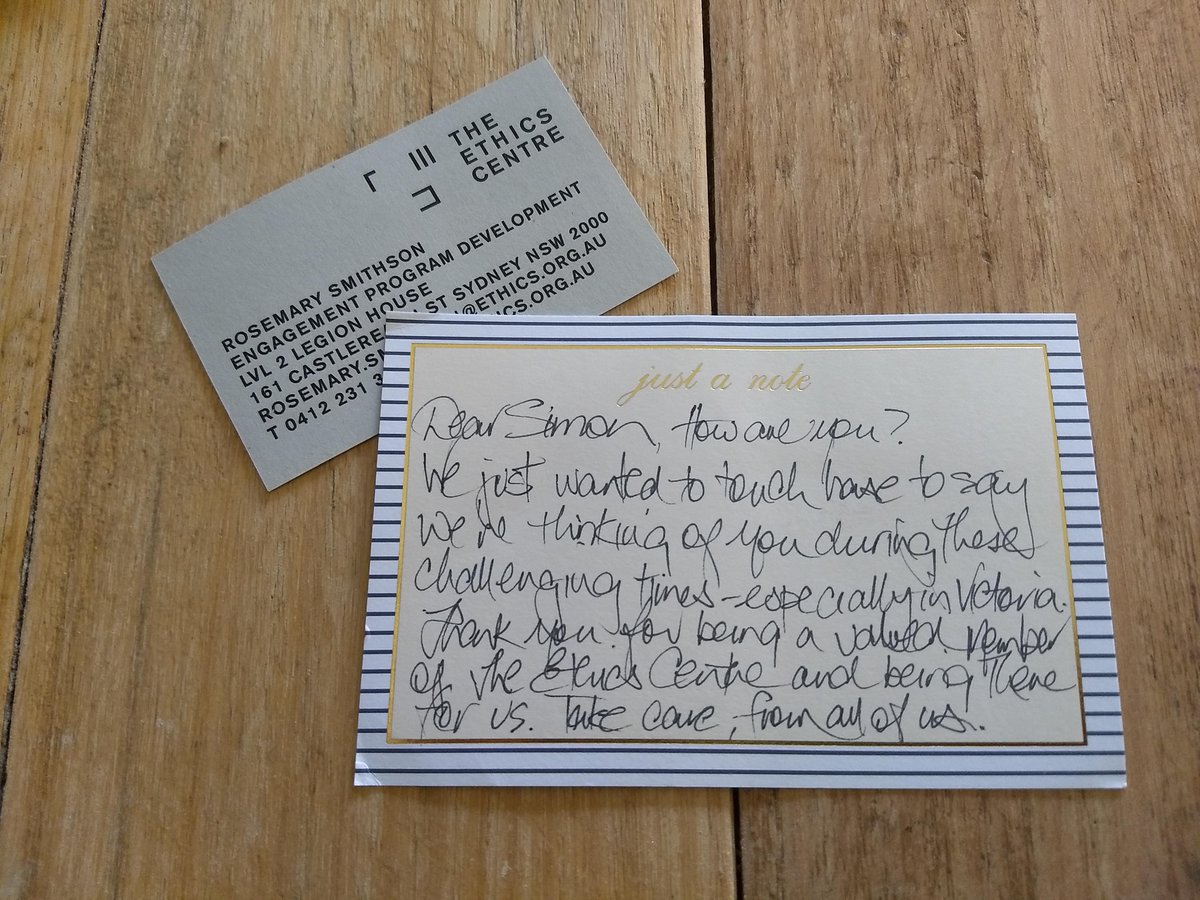 THE
ETHICS
CENTRE
ROSEMARY SMITHSON
ENGAGEMENT PROGRAM DEVELOPMENT
LVL 2 LEGION HOUSE
161 CASTLERE ST SYDNEY NSW 2000
ROSEMARY.SM @ETHICS.ORG.AU
T 0412 231 ICS.ORG.AU
just a note
Dear Simon, How are you?
We just wanted to touch base to say
we're thinking of you during these
challenging times - especially in Victoria.
Thank you for being a valued member
of The Ethics Centre and being there
for us. Take care, from all of us.